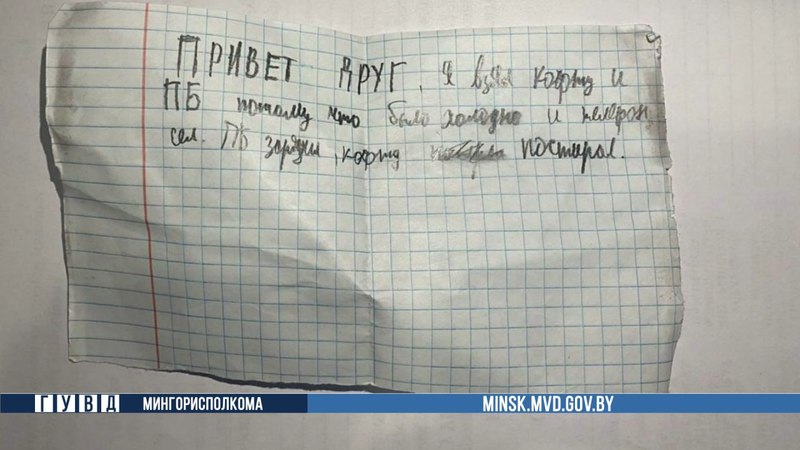 ПРИВЕТ ДРУГ, Я взял кофту и
ПБ потому что было холодно и телефон
сел. ПБ зарядил, кофту постирал.
ГУВД МИНГОРИСПОЛКОМА MINSK.MVD.GOV.BY